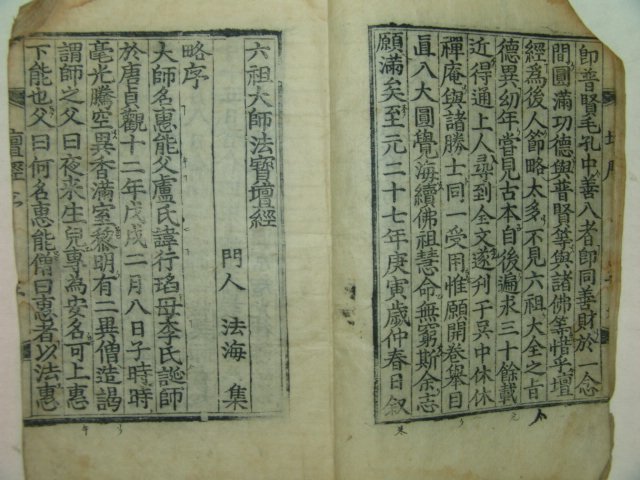 卽普賢毛孔中善入者卽同善財於一念
間圓滿功德與普賢等與諸佛等惜乎壇
經爲後人節略太多不見六祖大全之旨
德異幼年嘗見古本自後遍求三十餘載
近得通上人尋到全文遂刊于吳中休休
禪庵與諸勝士同一受用惟願開卷舉目
直入大圓覺海續佛祖慧命無窮斯余志
願滿矣至元二十七年庚寅歲仲春日叙
六祖大師法寶壇經
門人 法海 集
略序
大師名惠能父盧氏諱行瑫母李氏誕師
於唐貞觀十二年戊戌二月八日子時時
毫光騰空異香滿室黎明有二異僧造謁
謂師之父曰夜來生兒專爲安名可上惠
下能也父曰何名惠能僧曰惠者以法惠
壇經序